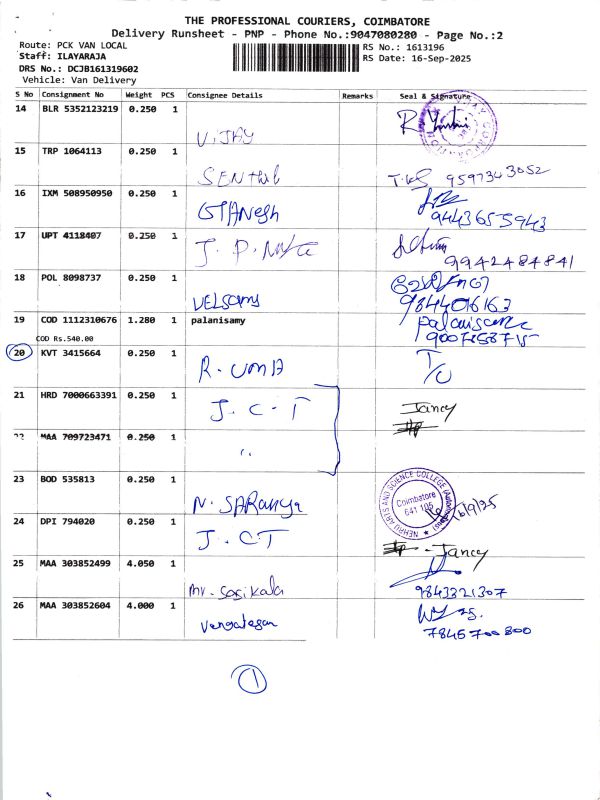 THE PROFESSIONAL COURIERS, COIMBATORE
Delivery Runsheet - PNP - Phone No.:9047080280 - Page No.:2
Route: PCK VAN LOCAL
Staff: ILAYARAJA
DRS No.: DCJB161319602
Vehicle: Van Delivery
RS No.: 1613196
RS Date: 16-Sep-2025
S No Consignment No Weight PCS Consignee Details Remarks Seal & Signature
14 BLR 5352123219 0.250 1 VIJAY
15 TRP 1064113 0.250 1 SENthil 9597343052
16 IXM 508950950 0.250 1 GANesh 9443655943
17 UPT 4118407 0.250 1 J. P. 9942484841
18 POL 8098737 0.250 1 VELSamy 9844016163
19 COD 1112310676 1.280 1 palanisamy Palanisamy
COD Rs.540.00
20 KVT 3415664 0.250 1 R. UMA
21 HRD 7000663391 0.250 1 J. C. T Jancy
22 MAA 709723471 0.250 1 "
23 BOD 535813 0.250 1 N. SARanya
NEHRU ARTS AND SCIENCE COLLEGE (Autonomous)
Coimbatore
641 105
16/9/25
24 DPI 794020 0.250 1 J. CT - Jancy
25 MAA 303852499 4.050 1 Mr. Sasikala 9843321307
26 MAA 303852604 4.000 1 Vengatesan 7845700800
1